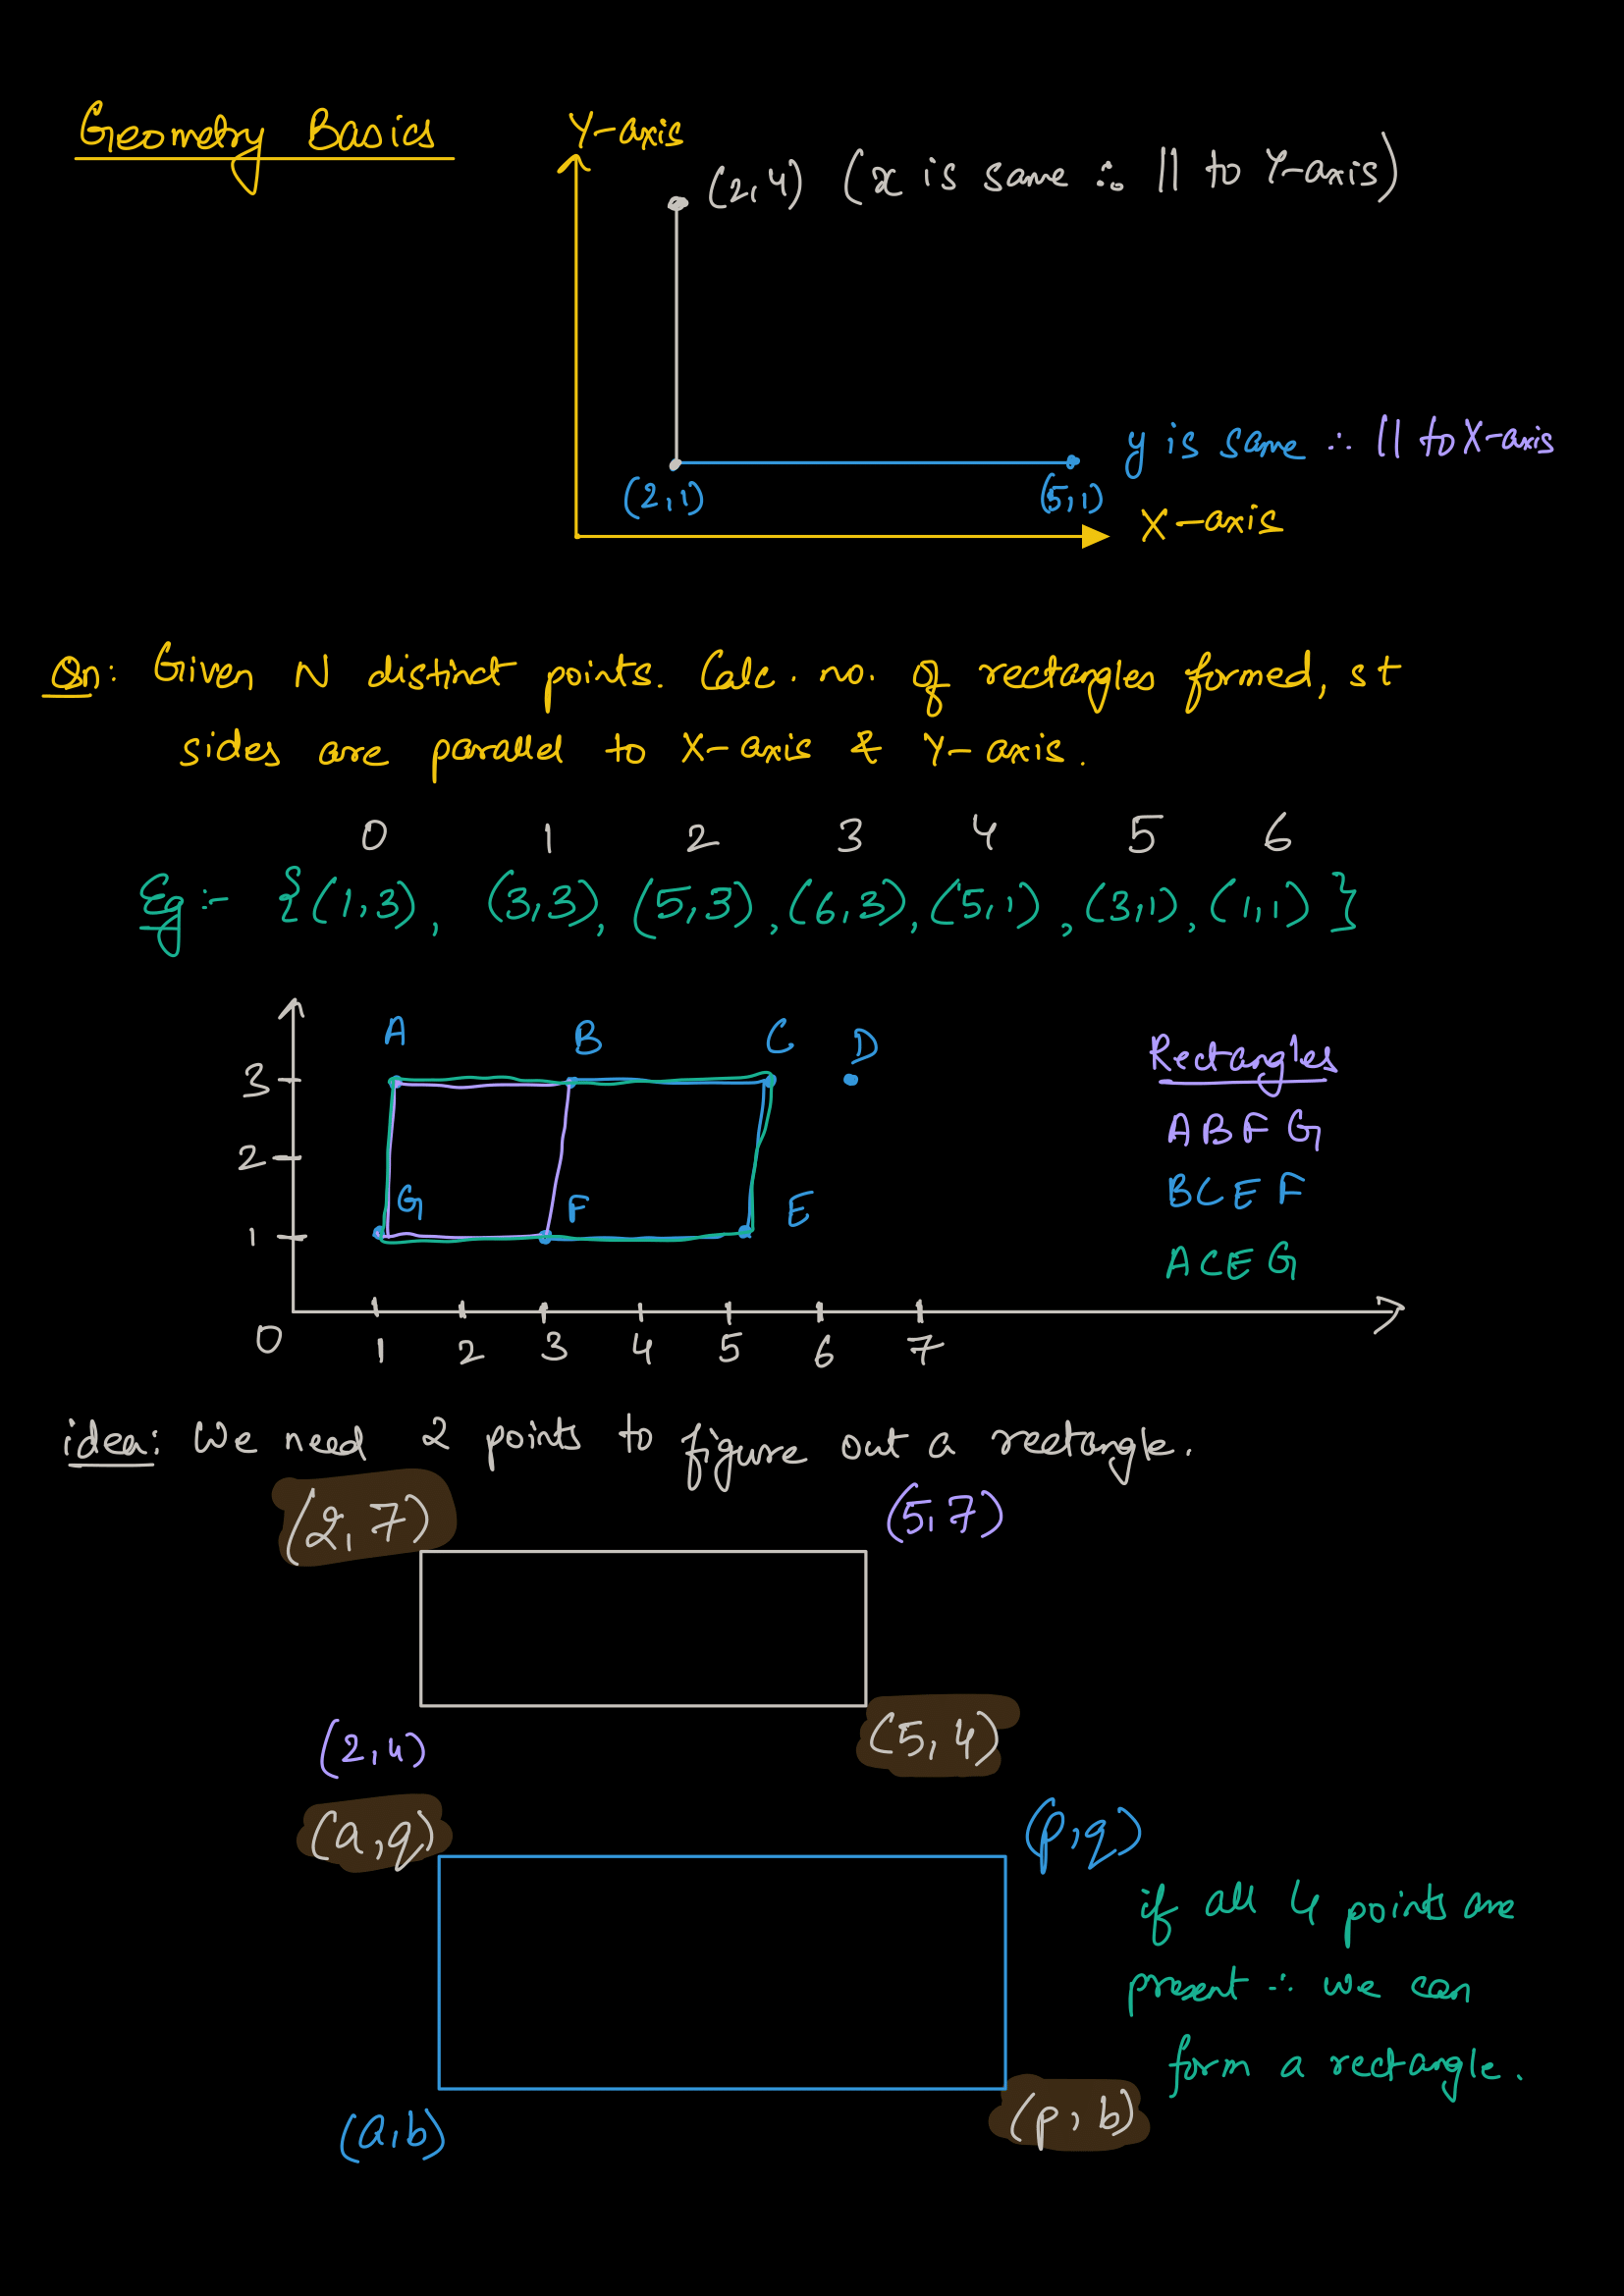 Geometry Basics
Y-axis
(2,4) (x is same ∴ || to Y-axis)
y is same ∴ || to X-axis
(2,1)
(5,1)
X-axis
Qn: Given N distinct points. Calc. no. of rectangles formed, st
sides are parallel to X-axis & Y-axis.
0 1 2 3 4 5 6
Eg :- {(1,3), (3,3), (5,3), (6,3), (5,1), (3,1), (1,1)}
A B C D
Rectangles
3
ABFG
2
BCEF
G F E
1
ACEG
0 1 2 3 4 5 6 7
idea: We need 2 points to figure out a rectangle.
(2,7) (5,7)
(2,4) (5,4)
(a,q) (p,q)
if all 4 points are
present ∴ we can
form a rectangle.
(a,b) (p,b)